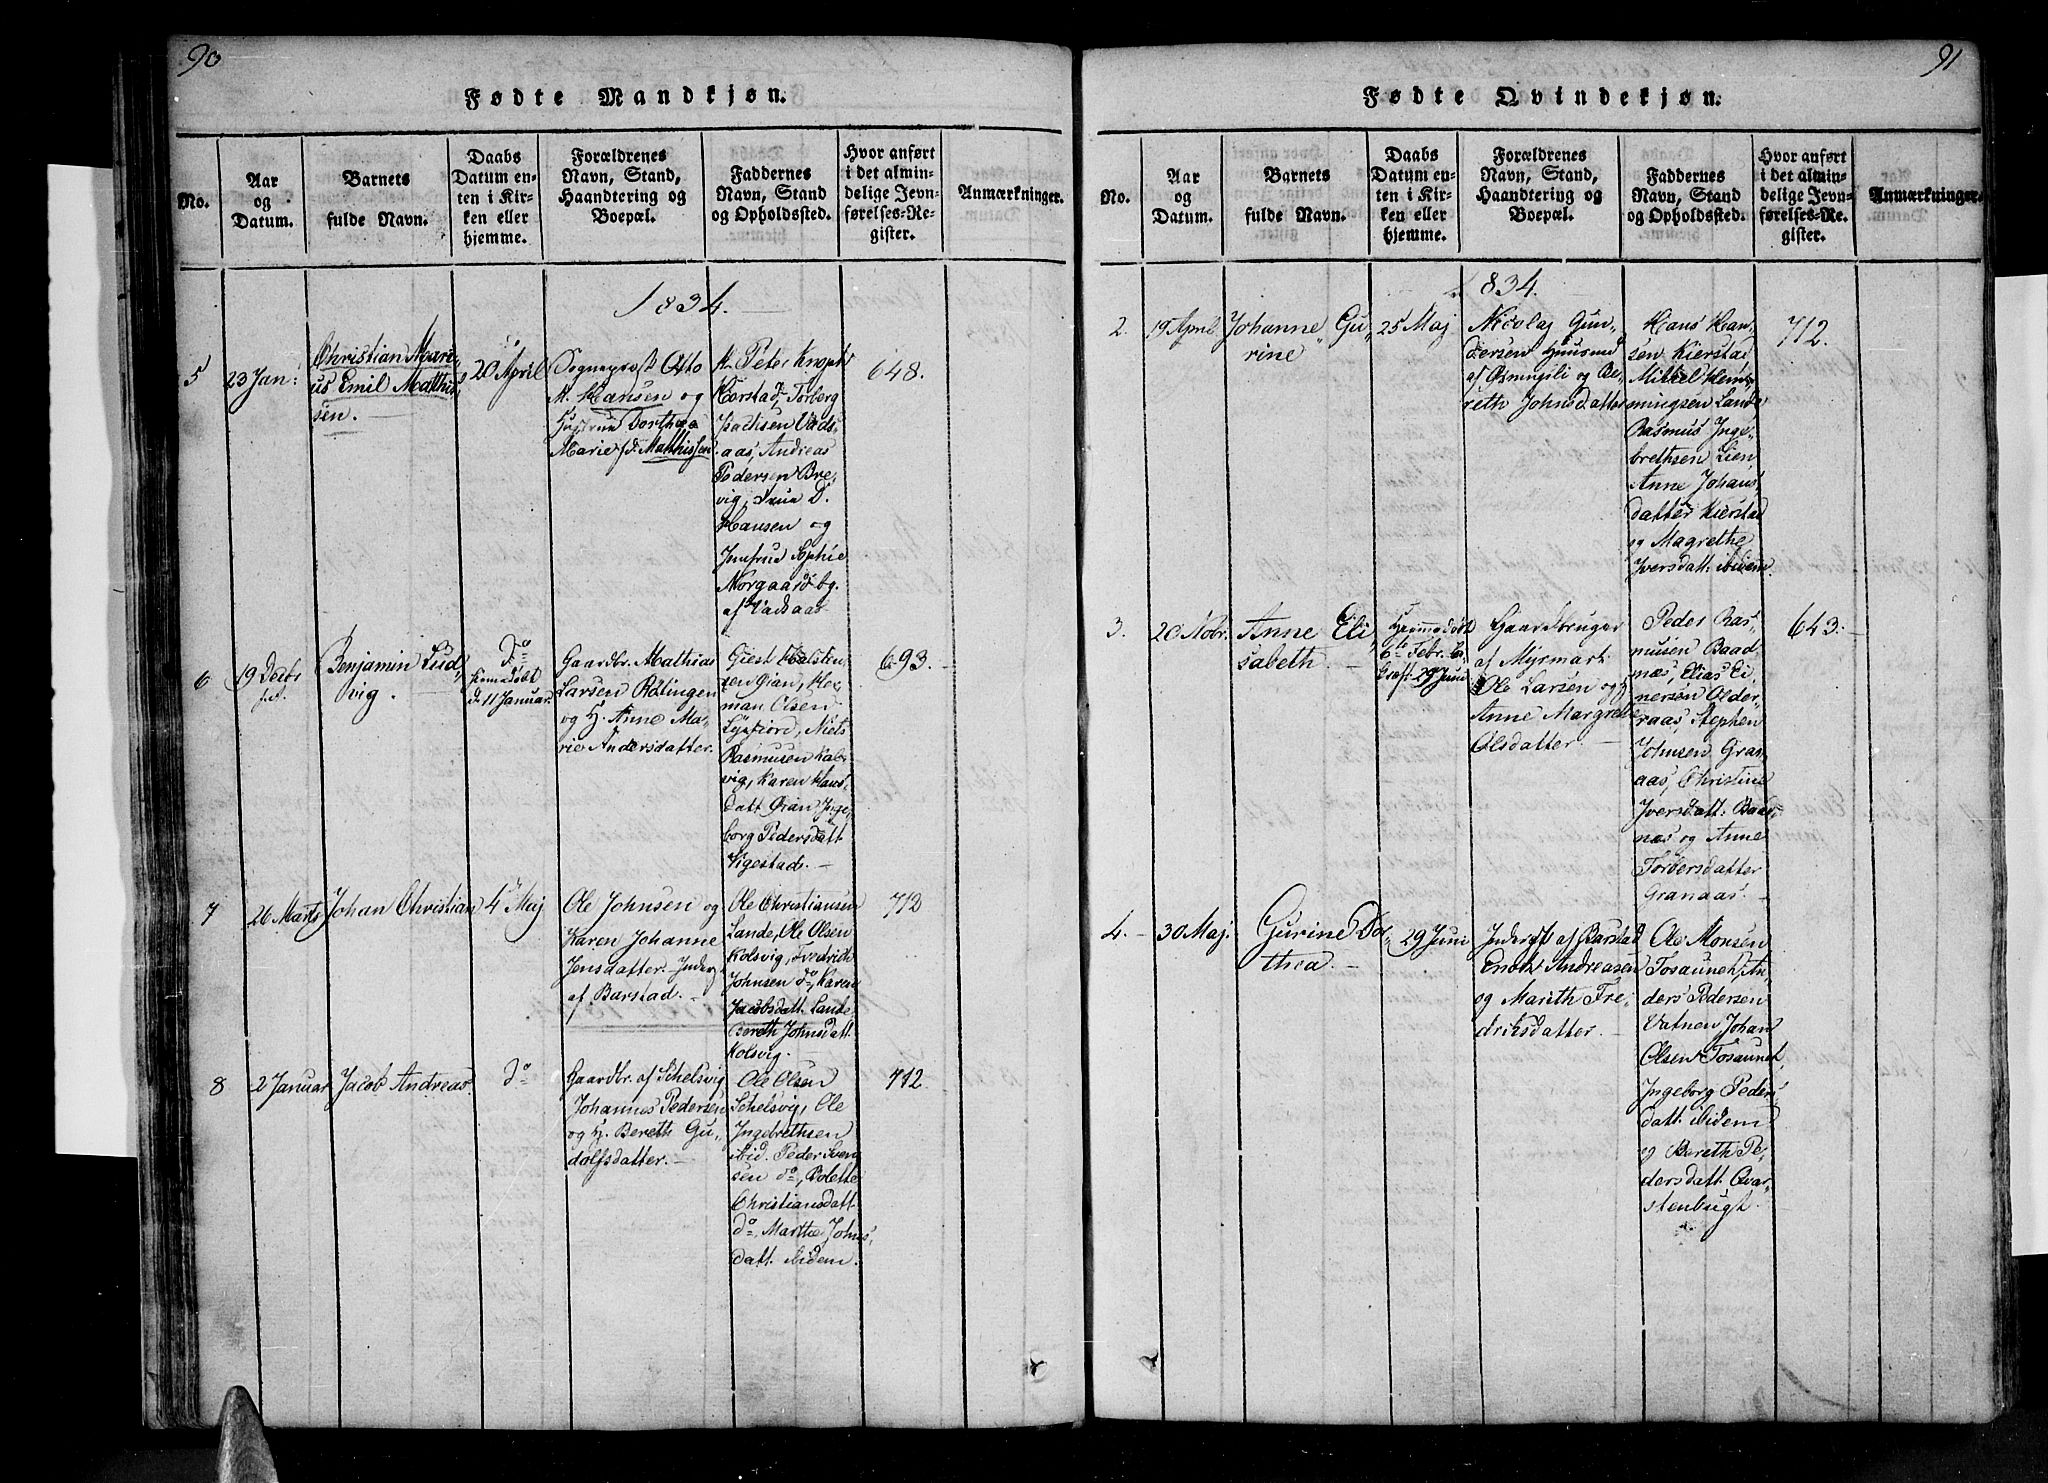 90
Fødte Mandkjøn.
No.
Aar
og
Datum.
Barnets
fulde Navn.
Daabs
Datum en-
ten i Kir-
ken eller
hjemme.
Forældrenes
Navn, Stand,
Haandtering og
Boepæl.
Faddernes
Navn, Stand
og Opholdssted.
Hvor anført
i det almin-
delige Jevn-
førelses-Re-
gister.
Anmærkninger.
1834.
5
23 Jan:
Christian Mari-
us Emil Matthis-
sen.
20 April
Sognepræst Otto
M. Hansen og
Hustrue Dorthea
Marie f. Matthissen
Hr. Peter
Kierstad, Torberg
Isachsen Vads-
aas, Andreas
Pedersen Bre-
vig, Frue D.
Hansen og
Jomfrue Sophie
Norgaard
af Vadsaas
648.
6
19 Decbr
Benjamin Lud-
vig.
Do
hjemmedøbt
d. 11 Januar.
Gaardbr. Mathias
Larsen Røtingen
og H. Anne Ma-
rie Andersdatter.
Giert Halsten-
sen Øian, Her-
man Olsen
Lysfiord, Niels
Rasmusen Kals-
vig, Karen Hans-
datt Øian, Inge-
borg Pedersdatt.
Vigestad. –
693. –
7
26 Marts
Johan Christian
4 Maj
Ole Johnsen og
Karen Johanne
Jensdatter. Inderst
af Barstad. –
Ole Christiansen
Lande, Ole Olsen
Kolsvig, Fredrich
Johnsen do, Karen
Jacobsdatt. Lande
Bereth Johnsdatt.
Kolsvig.
712
8
2 Januar
Jacob Andreas.
do
Gaardbr. af Schelsvig
Johannes Pedersen
og H. Bereth Gu-
dolfsdatter. –
Ole Olsen
Schelsvig, Ole
Ingebrethsen
ibid. Peder Iven-
sen do, Bolette
Christiansdatt.
do, Martha Johns-
datt. ibidem.
712.
91
Fødte Qvindekjøn.
No.
Aar
og
Datum.
Barnets
fulde Navn.
Daabs
Datum en-
ten i Kir-
ken eller
hjemme.
Forældrenes
Navn, Stand,
Haandtering og
Boepæl.
Faddernes
Navn, Stand
og Opholdssted.
Hvor anført
i det almin-
delige Jevn-
førelses-Re-
gister.
Anmærkninger.
1834.
2.
19 April
Johanne Gu-
rine
25 Maj
Nicolaj Gun-
dersen Huusmd
af og Be-
reth Johnsdatter
Hans Han-
sen Kierstad
Mikkel Hem-
mingsen Lande
Rasmus Inge-
brethsen Lien,
Anne Johans-
datter Kierstad
og Magrethe
Iversdatt. ibidem.
712.
3.
20 Nobr.
Anne Eli-
sabeth. –
Hjemmedøbt
6te Febr.
29 Juni
Gaardbruger
af Myrmark
Ole Larsen og H.
Anne Margrethe
Olsdatter. –
Peder Ras-
musen Baad-
næs, Elias Ei-
nersen Older-
aas, Stephen
Johnsen Gran-
aas, Christine
Iversdatt. Baad-
næs og Anne
Torbersdatter
Granaas.
643. –
4. –
30 Maj.
Gurine Do-
thea. –
29 Juni
Inderst af Barstad
Enok Andreasen
og Marith Fre-
driksdatter. –
Ole Monsen
Tosaunet, An-
ders Pedersen
Vatnen, Johan
Olsen Tosaunet,
Ingeborg Peders-
datt. ibidem
og Bereth Pe-
dersdatt. Qvar-
stenbugt.